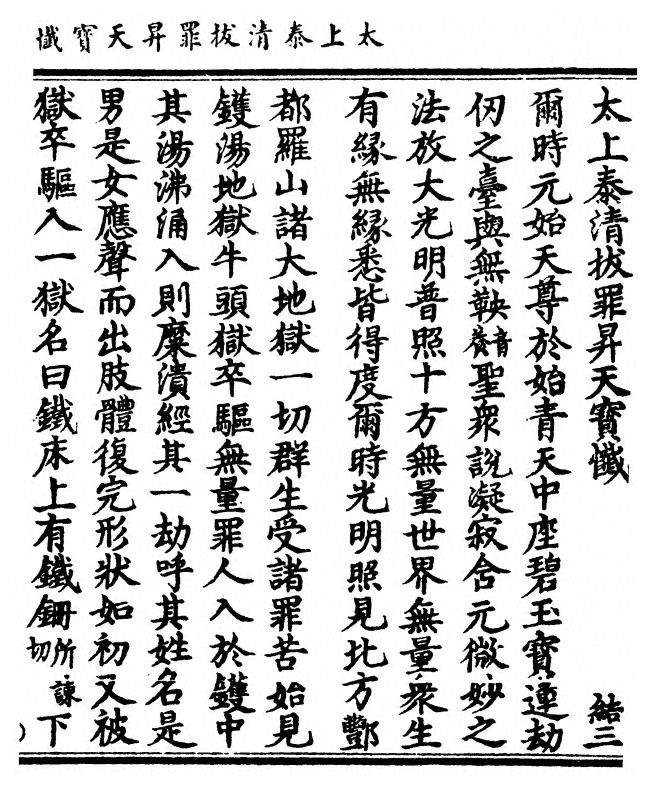 太上泰清拔罪昇天寶懺
太上泰清拔罪昇天寶懺 結三
爾時元始天尊於始青天中座碧玉寶運劫
仞之臺與無鞅音養聖眾說凝寂含元微妙之
法放大光明普照十方無量世界無量眾生
有緣無緣悉皆得度爾時光明照見北方酆
都羅山諸大地獄一切群生受諸罪苦始見
鑊湯地獄牛頭獄卒驅無量罪人入於鑊中
其湯沸涌入則糜潰經其一劫呼其姓名是
男是女應聲而出肢體復完形狀如初又被
獄卒驅入一獄名曰鐵床上有鐵鉶所諫切下